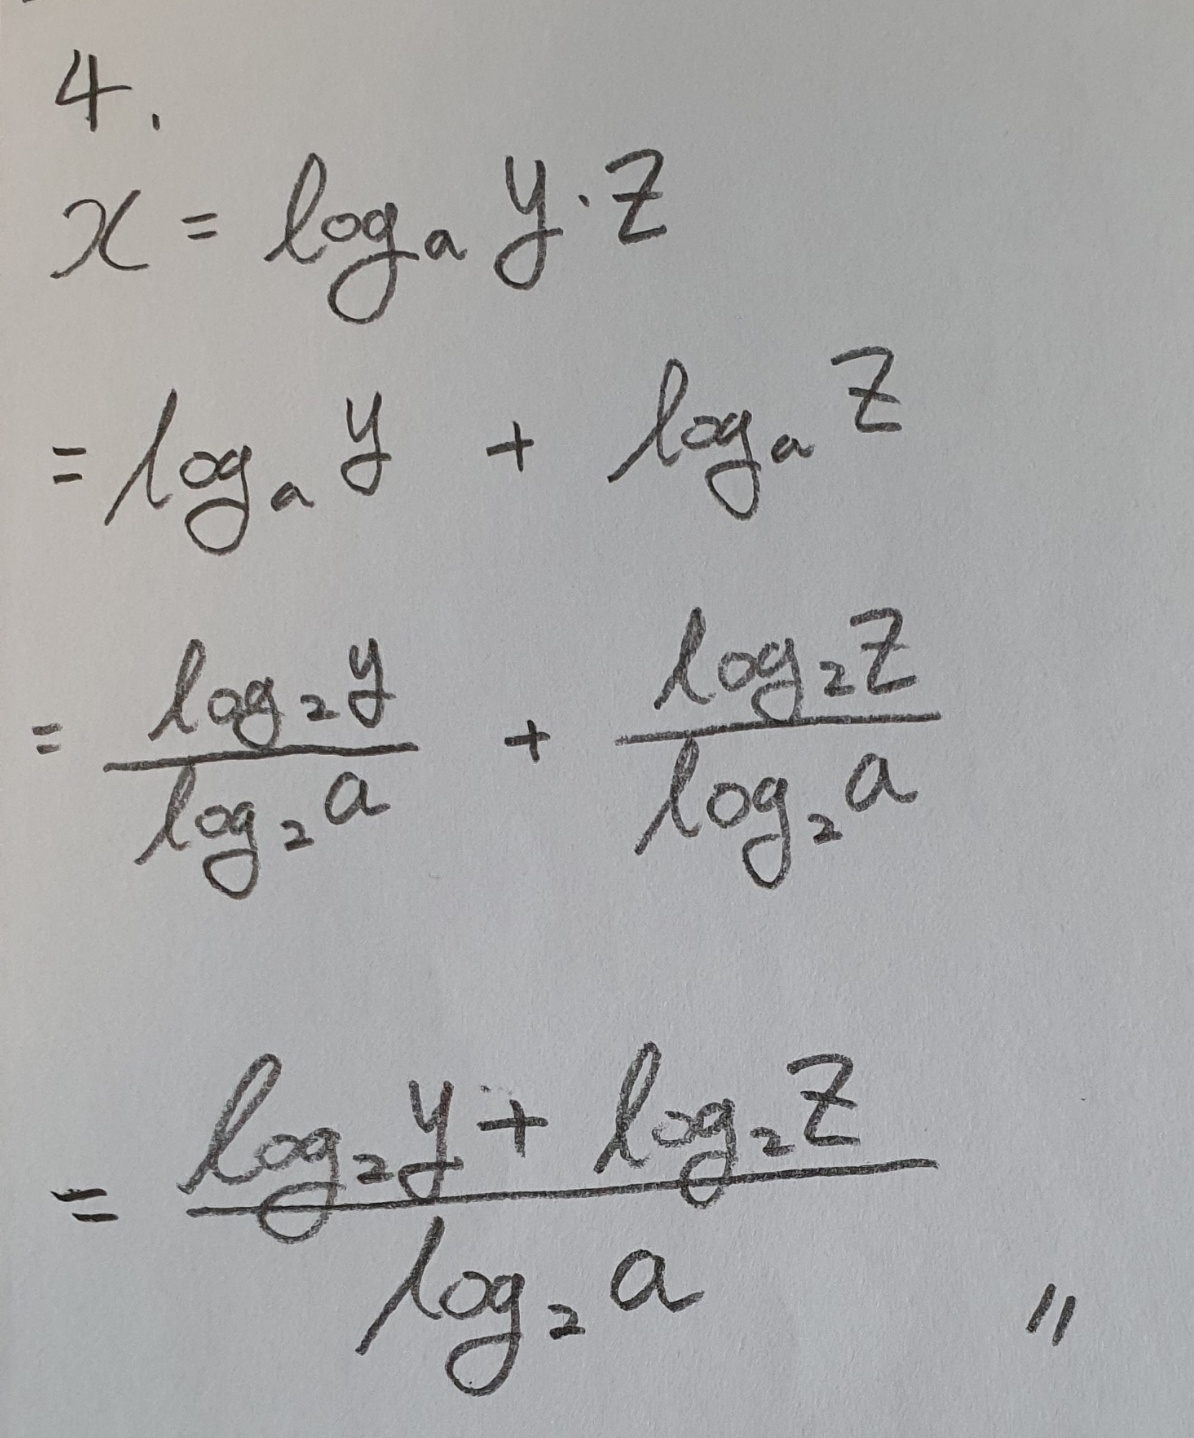 4.
x = logₐ y·z
= logₐ y + logₐ z
= log₂y / log₂a + log₂z / log₂a
= (log₂y + log₂z) / log₂a 〃